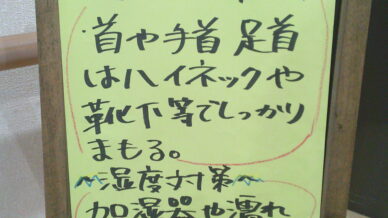 首や手首 足首
はハイネックや
靴下等でしっかり
まもる。
～湿度対策～
加湿器や濡れ